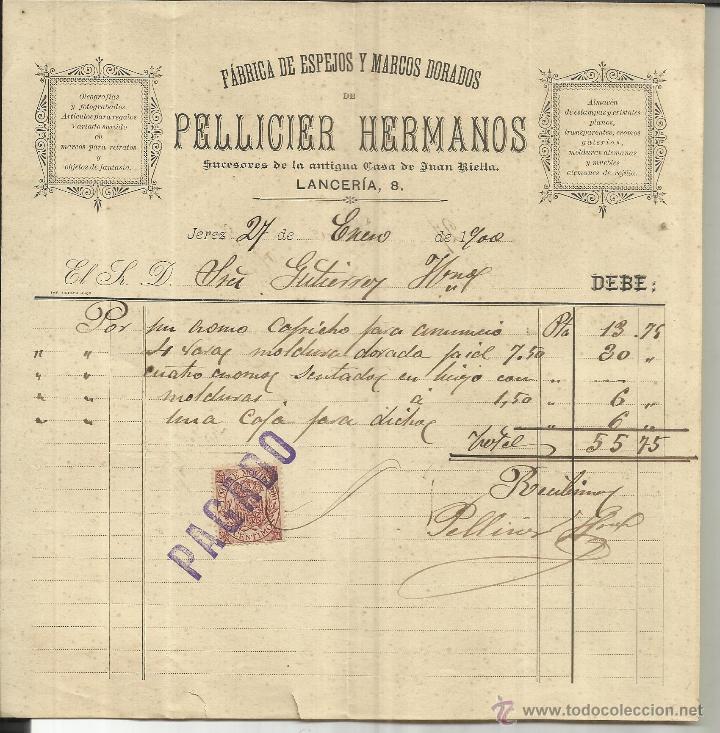 FÁBRICA DE ESPEJOS Y MARCOS DORADOS
DE
PELLICIER HERMANOS
Sucesores de la antigua Casa de Juan Riella.
LANCERÍA, 8.
Oleografías
y fotograbados
Artículos para regalos
Variado surtido
en
marcos para retratos
y
objetos de fantasía.
Almacen
de estampas y cristales
planos,
transparentes, cromos
galerías,
molduras alemanas
y muebles
alemanes de rejilla.
Jerez 27 de Enero de 1900
El Sr. D. Sres Gutierrez Hnos
DEBE:
Por un cromo capricho para anuncio Pta 13 . 75
" " 4 varas moldura dorada á 7.50 30 "
" " cuatro cromos sentados en lienzo con " —
" " molduras á 1,50 " 6 "
" " una caja para dichos " 6 "
Total 55 75
Recibimos
Pellicier Hnos
PAGADO
www.todocoleccion.net